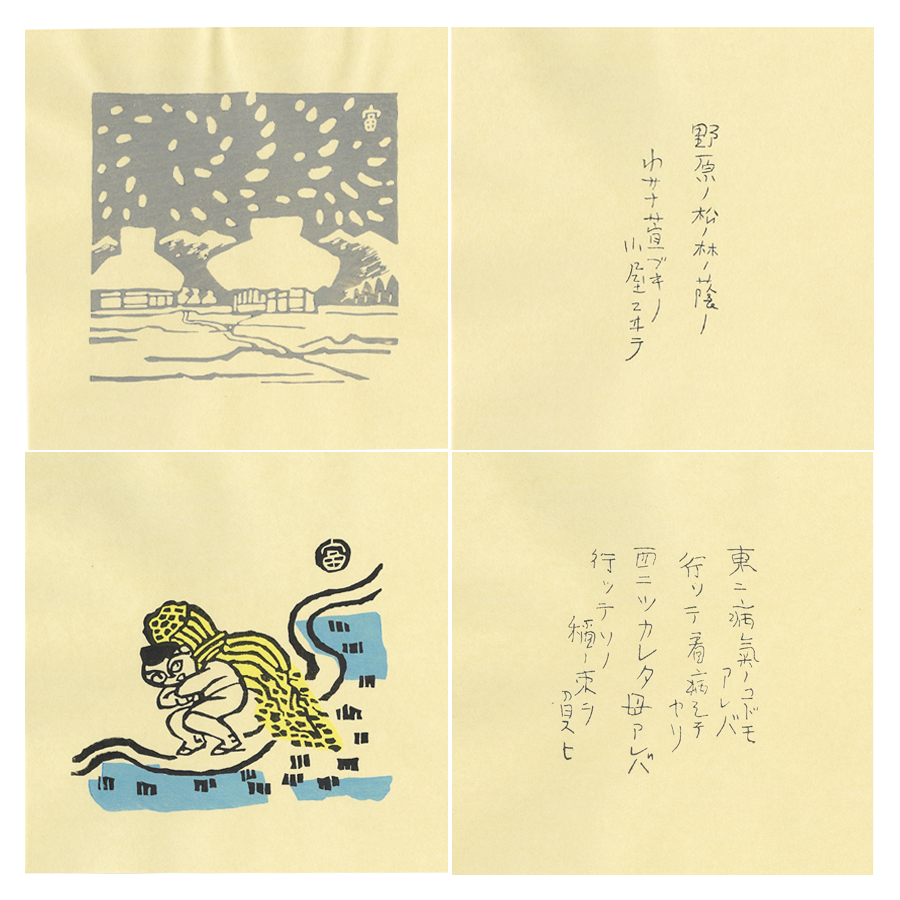 富
野原ノ松ノ林ノ蔭ノ
小サナ萱ブキノ
小屋ニヰテ
富
東ニ病氣ノコドモ
アレバ
行ッテ看病シテ
ヤリ
西ニツカレタ母アレバ
行ッテソノ
稲ノ束ヲ
負ヒ